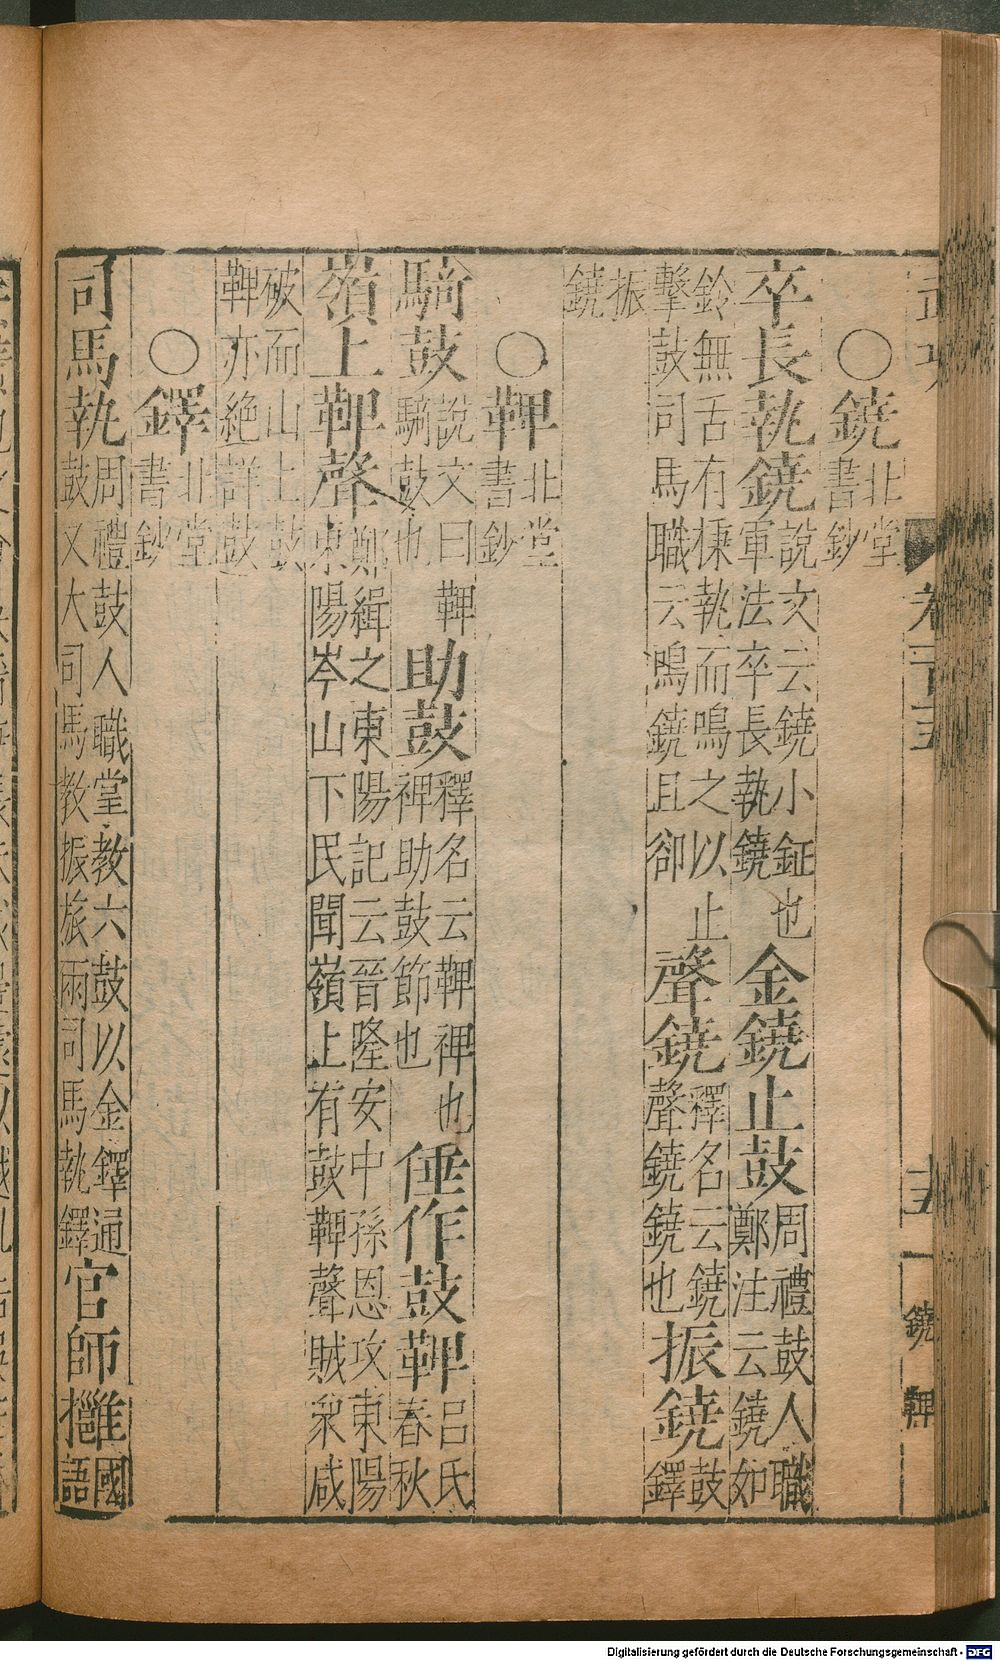 ○鐃 北堂書鈔
卒長執鐃 說文云鐃小鉦也軍法卒長執鐃 金鐃止鼓 周禮鼓人職鄭注云鐃如
鈴無舌有秉執而鳴之以止擊鼓司馬職云鳴鐃且卻 聲鐃 釋名云鐃聲鐃鐃也 振鐃 鼓鐸
振鐃
○鞞 北堂書鈔
騎鼓 說文曰鞞騎鼓也 助鼓 釋名云鞞裨也裨助鼓節也 倕作鼓鞞 呂氏春秋
嶺上鞞聲 鄭緝之東陽記云晉隆安中孫恩攻東陽東陽岑山下民聞嶺上有鼓鞞聲賊衆咸
破而山上鼓鞞亦絶詳鼓
○鐸 北堂書鈔
司馬執 周禮鼓人職掌教六鼓以金鐸通鼓又大司馬教振旅兩司馬執鐸 官師擁 國語
卷一百 五
十五
鐃 鞞
Digitalisierung gefördert durch die Deutsche Forschungsgemeinschaft - DFG